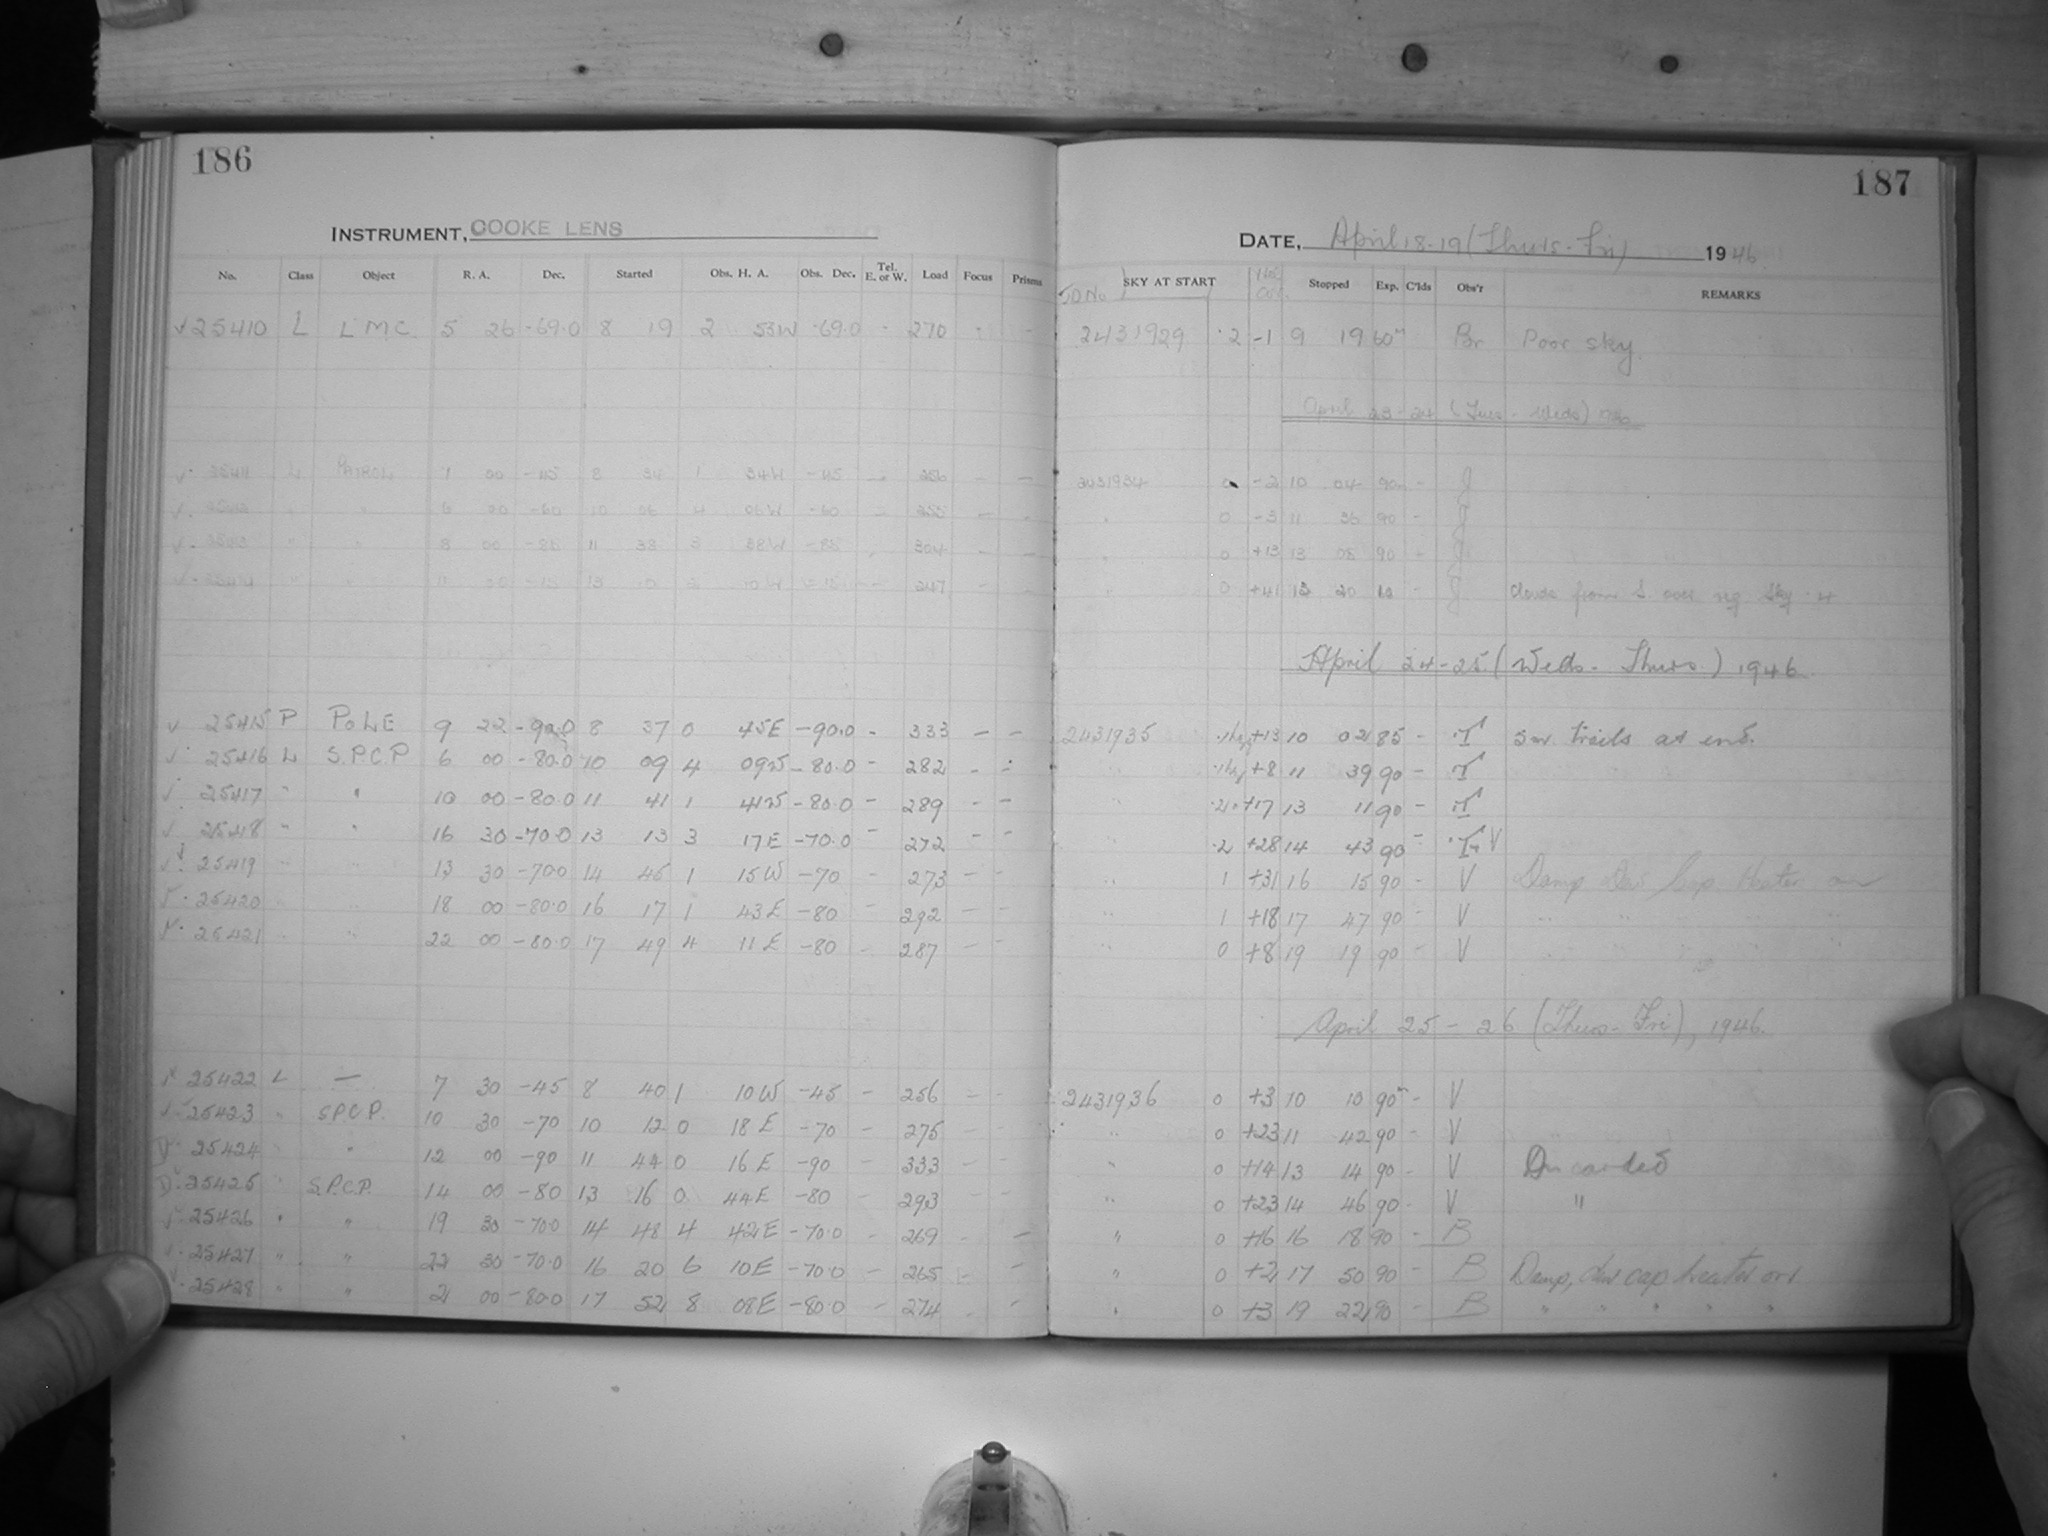 186
INSTRUMENT, COOKE LENS
No. Class Object R. A. Dec. Started Obs. H. A. Obs. Dec. Tel. E. or W. Load Focus Prisms
√ 25410 L L M C. 5 26 -69.0 8 19 2 53W -69.0 - 270 - -
√· L PATROL 1 00 -45 8 34 1 34W -45 - 256 - -
√· " " 6 00 -60 10 06 4 06W -60 - 255 - -
√· " " 8 00 -85 11 38 3 38W -85 - 304 - -
√· " " 11 00 13 247 - -
√ 25415 P POLE 9 22 -90.0 8 37 0 45E -90.0 - 333 - -
√· 25416 L S.P.C.P 6 00 -80.0 10 09 4 09W -80.0 - 282 - -
√ 25417 " " 10 00 -80.0 11 41 1 41W -80.0 - 289 - -
√ 25418 " " 16 30 -70.0 13 13 3 17E -70.0 - 272 - -
√ 25419 " " 13 30 -70.0 14 45 1 15W -70 - 273 - -
√· 25420 " " 18 00 -80.0 16 17 1 43E -80 - 292 - -
√· 25421 " " 22 00 -80.0 17 49 4 11E -80 - 287 - -
√ 25422 L — 7 30 -45 8 40 1 10W -45 - 256 - -
√ 25423 " S.P.C.P. 10 30 -70 10 12 0 18E -70 - 275 - -
D· 25424 " " 12 00 -90 11 44 0 16E -90 - 333 - -
D· 25425 " S.P.C.P. 14 00 -80 13 16 0 44E -80 - 293 - -
√ 25426 " " 19 30 -70.0 14 48 4 42E -70.0 - 269 - -
√· 25427 " " 22 30 -70.0 16 20 6 10E -70.0 - 265 - -
√ 25428 " " 2 00 -80.0 17 52 8 08E -80.0 - 274 - -
187
DATE, April 18-19 (Thurs.-Fri) 1946
JD No. SKY AT START Stopped Exp. C'lds Obs'r REMARKS
2431929 ·2 -1 9 19 60m Br Poor sky
April 23-24 (Tues.-Weds) 1946
2431934 0 -2 10 04 90 - J
" 0 -3 11 36 90 - J
" 0 +13 13 08 90 - J
" 0 +41 13 20 10 - J clouds from S over
April 24-25 (Weds.-Thurs.) 1946
2431935 +13 10 02 85 - T trails at end.
" +8 11 39 90 - T
" +17 13 11 90 - T
" ·2 +28 14 43 90 - T V
" 1 +31 16 15 90 - V Damp Dew Cap Heater on
" 1 +18 17 47 90 - V " " " " "
" 0 +8 19 19 90 - V " " " " "
April 25-26 (Thurs-Fri), 1946.
2431936 0 +3 10 10 90m - V
" 0 +23 11 42 90 - V
" 0 +14 13 14 90 - V Discarded
" 0 +23 14 46 90 - V "
" 0 +16 16 18 90 - B
" 0 +2 17 50 90 - B Damp, dew cap heater on
" 0 +3 19 22 90 - B " " " " "